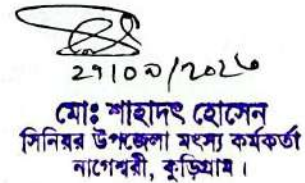 ২১/০৯/২০২৬
মোঃ শাহাদৎ হোসেন
সিনিয়র উপজেলা মৎস্য কর্মকর্তা
নাগেশ্বরী, কুড়িগ্রাম।